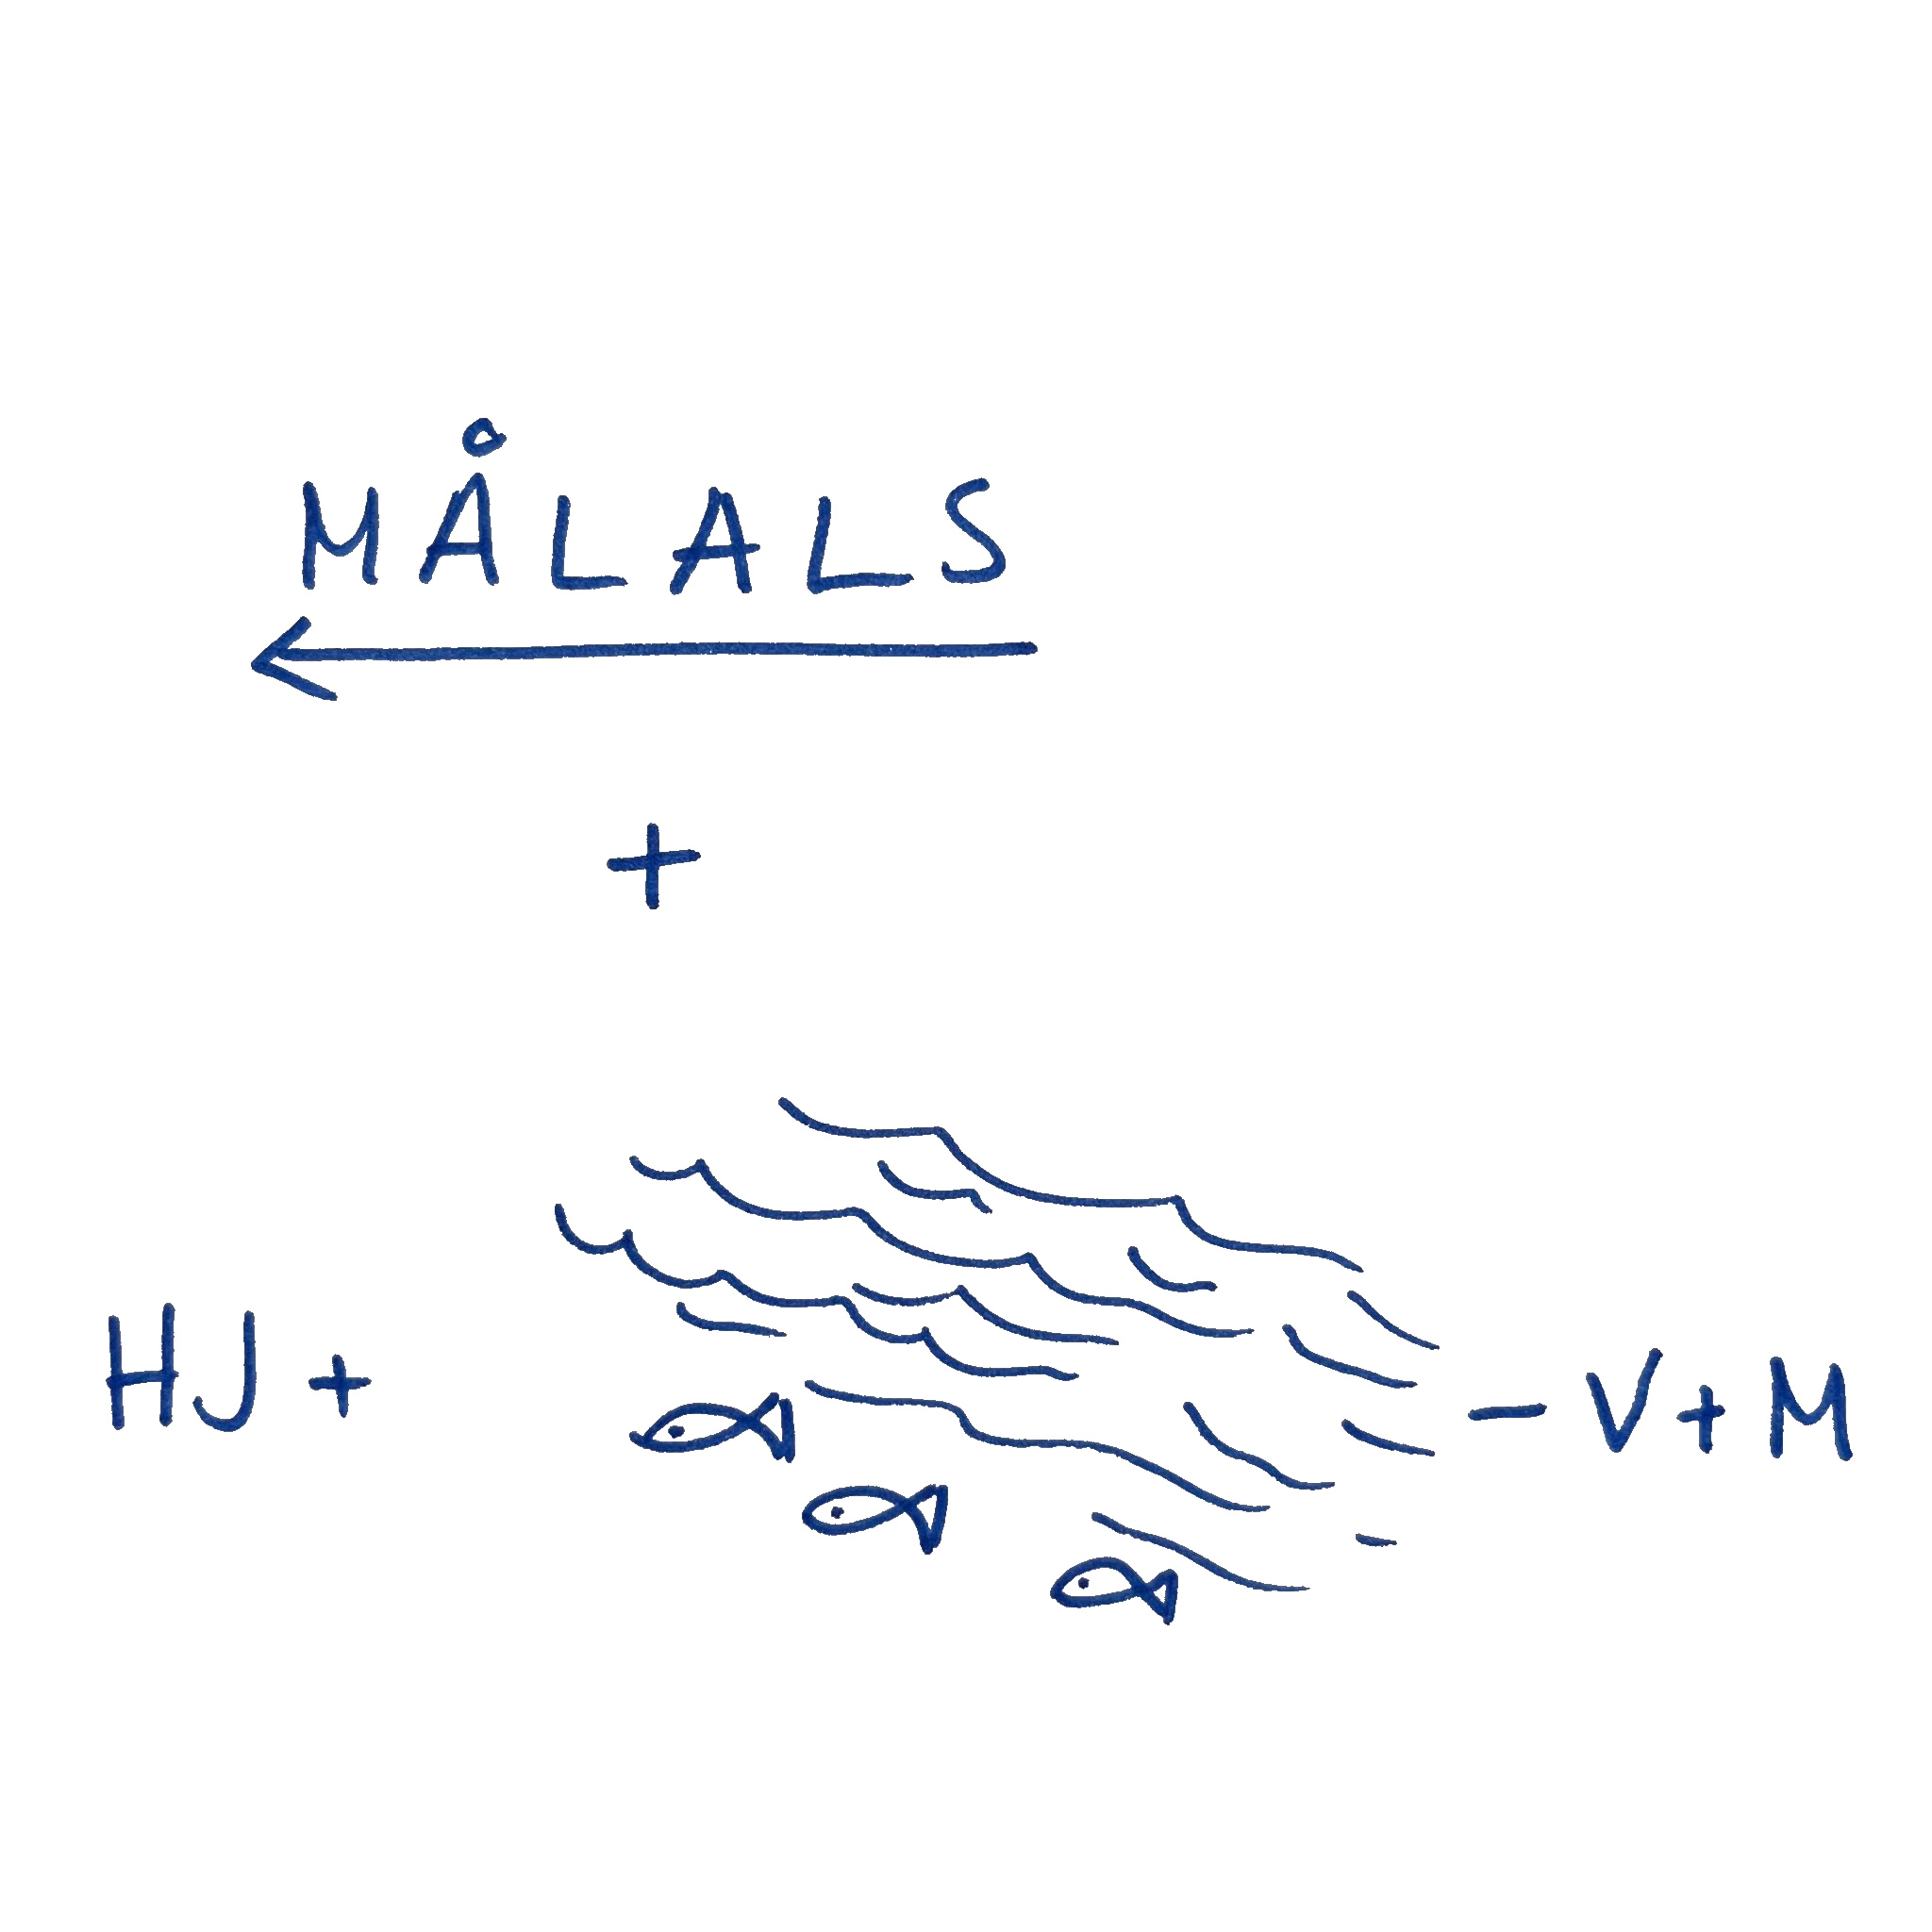 MÅLALS
+
HJ + - V+M